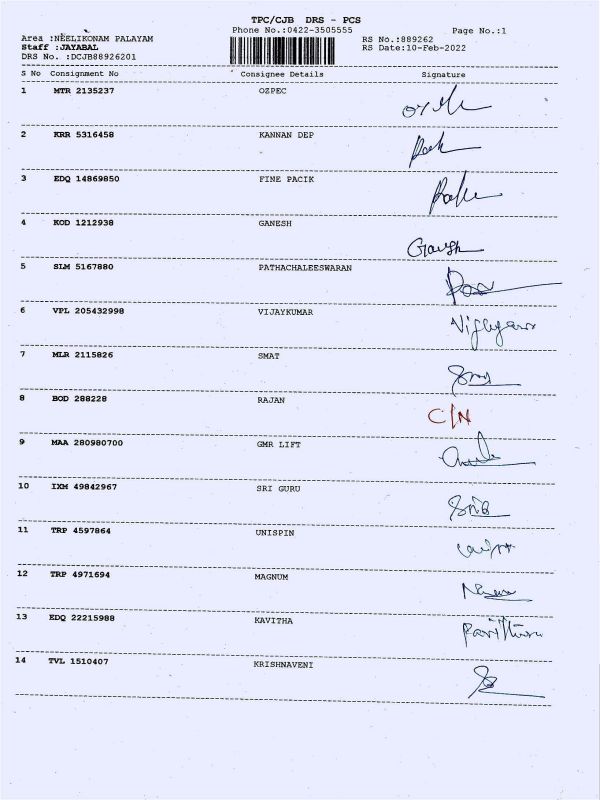 TPC/CJB DRS - PCS
Phone No.:0422-3505555 Page No.:1
Area :NEELIKONAM PALAYAM RS No.:889262
Staff :JAYABAL RS Date:10-Feb-2022
DRS No. :DCJB88926201
S No Consignment No Consignee Details Signature
1 MTR 2135237 OZPEC
2 KRR 5316458 KANNAN DEP
3 EDQ 14869850 FINE PACIK
4 KOD 1212938 GANESH Ganesh
5 SLM 5167880 PATHACHALEESWARAN
6 VPL 205432998 VIJAYKUMAR
7 MLR 2115826 SMAT
8 BOD 288228 RAJAN C/N
9 MAA 280980700 GMR LIFT
10 IXM 49842967 SRI GURU
11 TRP 4597864 UNISPIN
12 TRP 4971694 MAGNUM
13 EDQ 22215988 KAVITHA
14 TVL 1510407 KRISHNAVENI